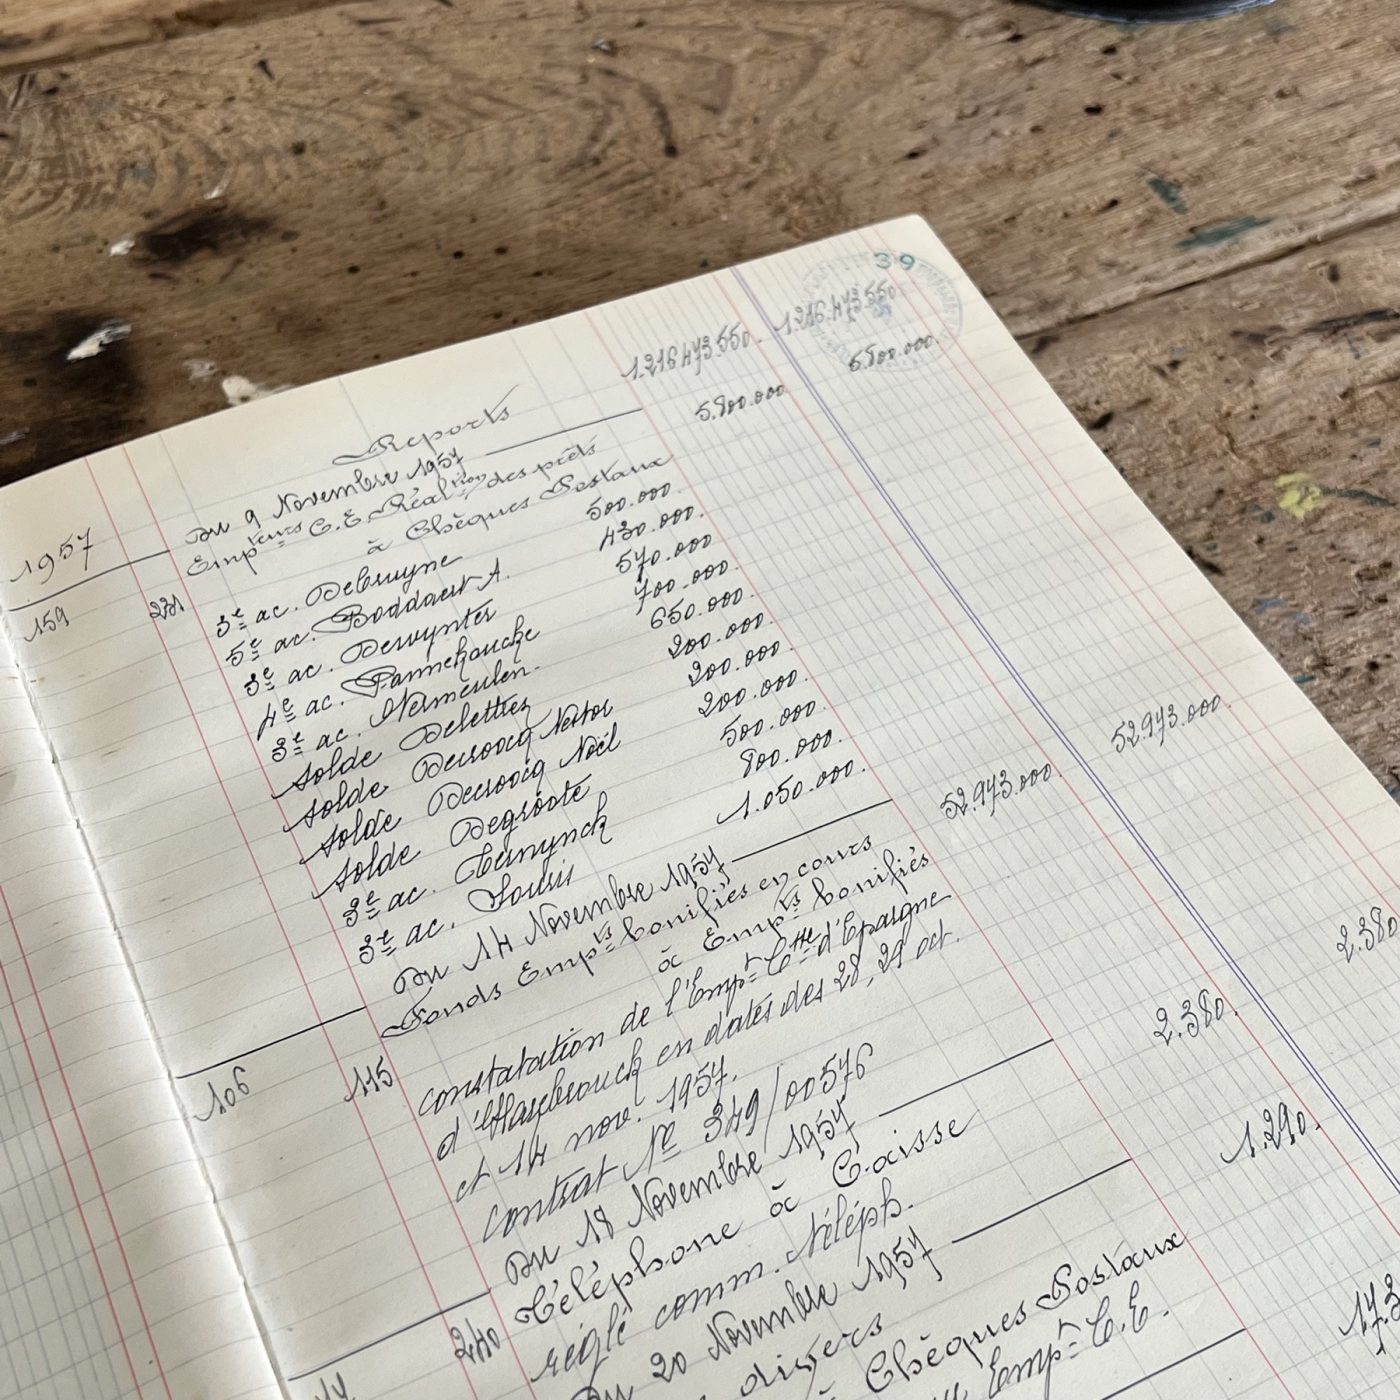 39
Reports 1.216.473.550. 1.216.473.550
1957 Du 9 Novembre 1957 5.800.000 5.800.000
Emp^teurs C.E. Réal^tion des prêts
à Chèques Postaux
159 231 3e ac. Debruyne 500.000.
5e ac. Boddaert A. 430.000.
3e ac. Dewynter 570.000
4e ac. Pannekoucke 700.000.
3e ac. Vermeulen. 650.000.
Solde Delettrez 200.000.
Solde Decroocq Nestor 200.000.
Solde Decroocq Noël 200.000.
Solde Degroote 500.000.
3e ac. Ternynck 800.000.
3e ac. Souris 1.050.000.
Du 14 Novembre 1957 52.973.000. 52.973.000.
Fonds Emp^ts bonifiés en cours
à Emp^ts bonifiés
106 115 constatation de l'Emp^t C^sse d'Epargne
d'Hazebrouck en dates des 28, 29 oct.
et 14 nov. 1957.
contrat N° 349/00576
Du 18 Novembre 1957 2.380. 2.380
Téléphone à Caisse
240 réglé comm. téléph.
Du 20 Novembre 1957 1.290.
divers
à Chèques Postaux
Emp^t C.E.